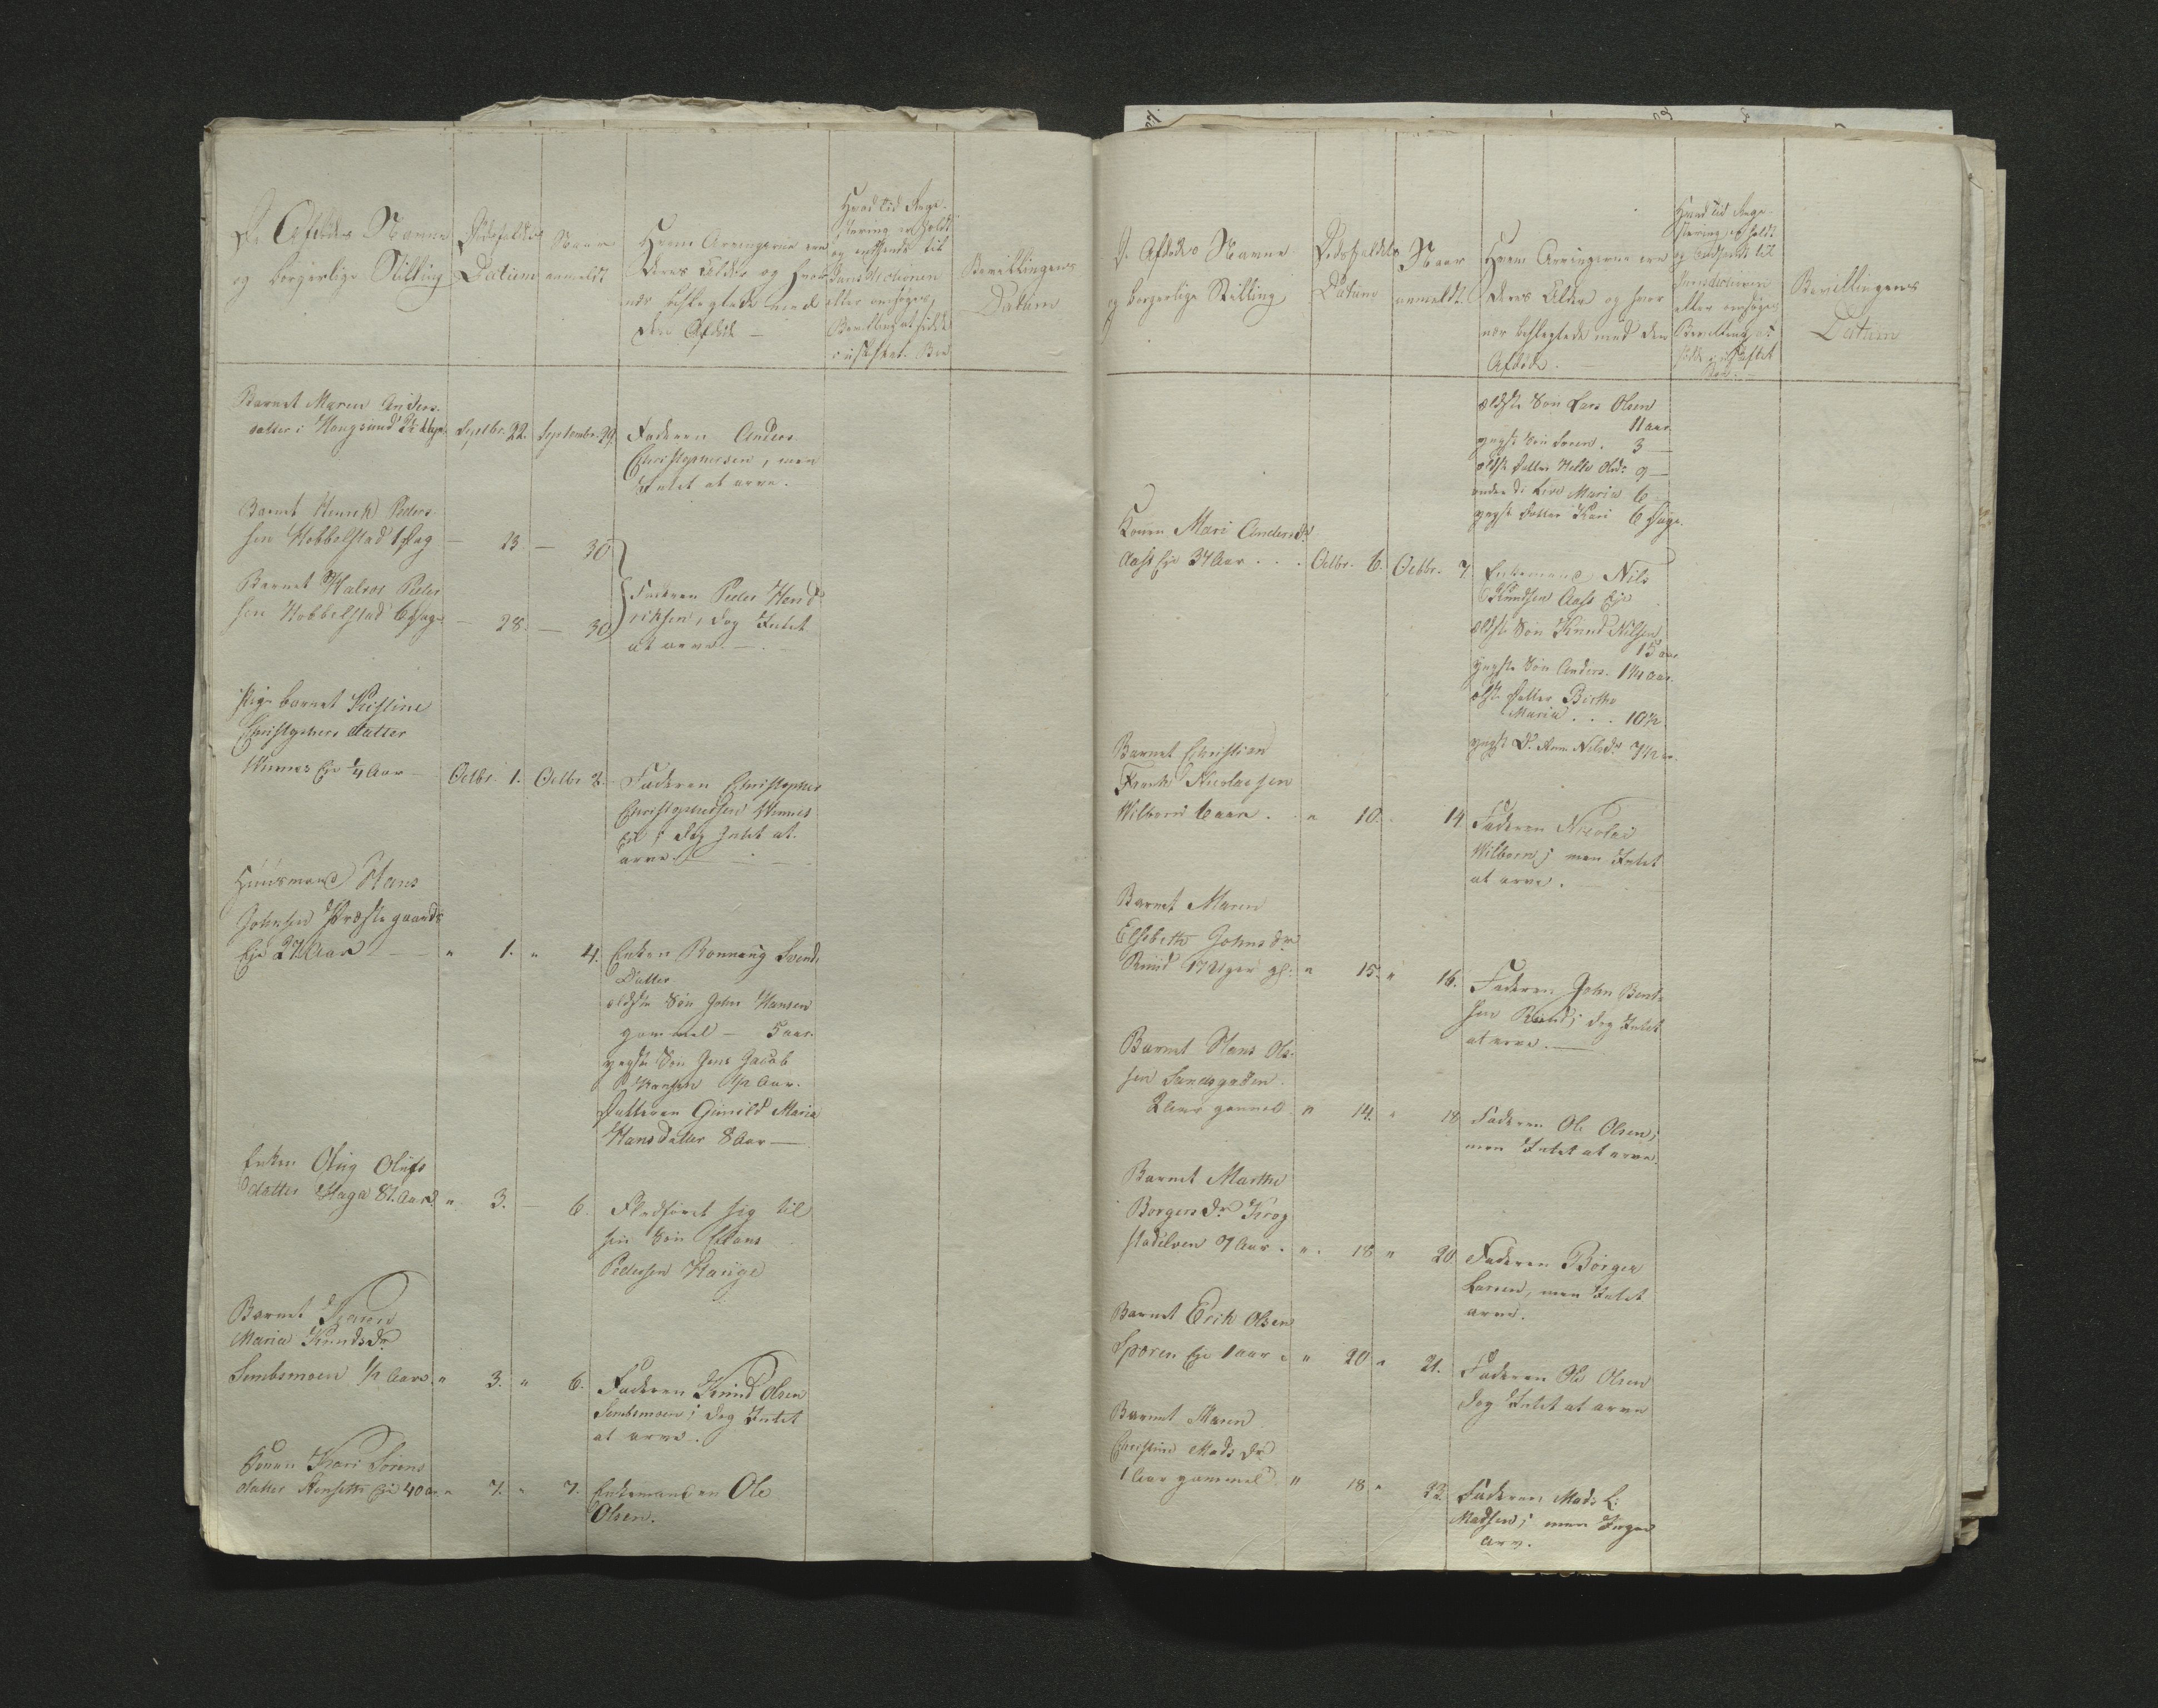 De Afdødes Navne
og borgerlige Stilling
Dødsfaldets
Datum
Naar
anmeldt
Hvem Arvingerne ere
deres Alder og hvor
nær beslegtede med
den Afdøde —
Hvad tid Regi-
strering er holdt
og indsendt til
eller ansøgt
Bevilling at sidde
i uskiftet Boe
Bevillingens
Datum
Barnet Maren Anders-
datter i Hougsund
Septbr. 22. Septembr. 29.
Faderen Anders
Christophersen, men
Intet at arve.
Barnet Henrik Peders-
sen Hobbelstad 1 Dag — 23. — 30
Barnet Halvor Peder
sen Hobbelstad 6 Dage — 28. — 30
Faderen Peder Hend-
riksen, dog Intet
at arve. —
Pige barnet Kistine
Christophers datter
Eje 1/4 Aar — Octbr. 1. Octbr 2.
Faderen Christopher
Christophersen
Eje; dog Intet at
arve.
Huusmand Hans
Johnsen Præstegaards
Eje 27 Aar — " 1. " 4.
Enken Ronnaug Svends
Datter
ældste Søn John Hansen
gammel — 5 aar.
yngste Søn Jens Jacob
Hansen 1/2 Aar.
Datteren Gunild Maria
Hansdatter 8 Aar —
Enken Olug Olufs
datter Haga 81 Aar " 3. — 6.
Fledføret sig til
sin Søn
Pedersen Hauge
Barnet Karen
Maria Knudsdr
Sembsmoen 1/2 Aar. " 3. " 6.
Faderen Knud Olsen
Sembsmoen; dog Intet
at arve.
Konen Kari Sørens
datter Eje 40 a. " 7. " 7.
Enkemanden Ole
Olsen.
De Afdødes Navne
og borgerlige Stilling
Dødsfaldets
Datum
Naar
anmeldt.
Hvem Arvingerne ere
deres Alder og hvor
nær beslegtede med den
Afdøde. —
Hvad tid Regi-
strering er holdt
og indsendt til
eller ansøgt
Bevilling at
sidde i uskiftet
Boe. —
Bevillingens
Datum
ældste Søn Lars Olsen
11 aar
yngste Søn Soren. 3 —
ældste Datter Helle Olsdr 9 —
anden do Live Maria 6
yngste Datter Kari 6 Dage.
Konen Mari Andersdr
Aass Eje 37 Aar . . . Octbr. 6. Octbr. 7
Enkemand Nils
Knudsen Aass Eje
ældste Søn Knud Nilsen
15 aar
yngste Søn Anders. 14 aar.
ælste Datter Birthe
Maria . . . 10 1/2
yngst D. Ann Nilsdr
Barnet Christian
Frank Nicolaesen
Wilborn 6 aar. . " 10. 14
Faderen Nicolai
Wilborn; men Intet
at arve.
Barnet Maren
Elsebeth Johnsdr
Ruud 17 Uger gl: " 15. " 16.
Faderen John Bent-
sen Ruud; dog Intet
at arve. —
Barnet Hans Ols-
sen Sandsgaden.
2 Aar gammel " 14. " 18
Faderen Ole Olsen;
men Intet at arve.
Barnet Marthe
Borgersdr Krog
stadelven 7 Aar. ". 18 " 20
Faderen Borger
Larsen, men Intet
arve.
Barnet Erik Olsen
Sporen Eje 1 aar " 20 " 21.
Faderen Ole Olsen
dog Intet at arve
Barnet Maren
Christine Mads dr
1 Aar gammel " 18 " 22.
Faderen Mads L:
Madsen; men Ingen
arv.